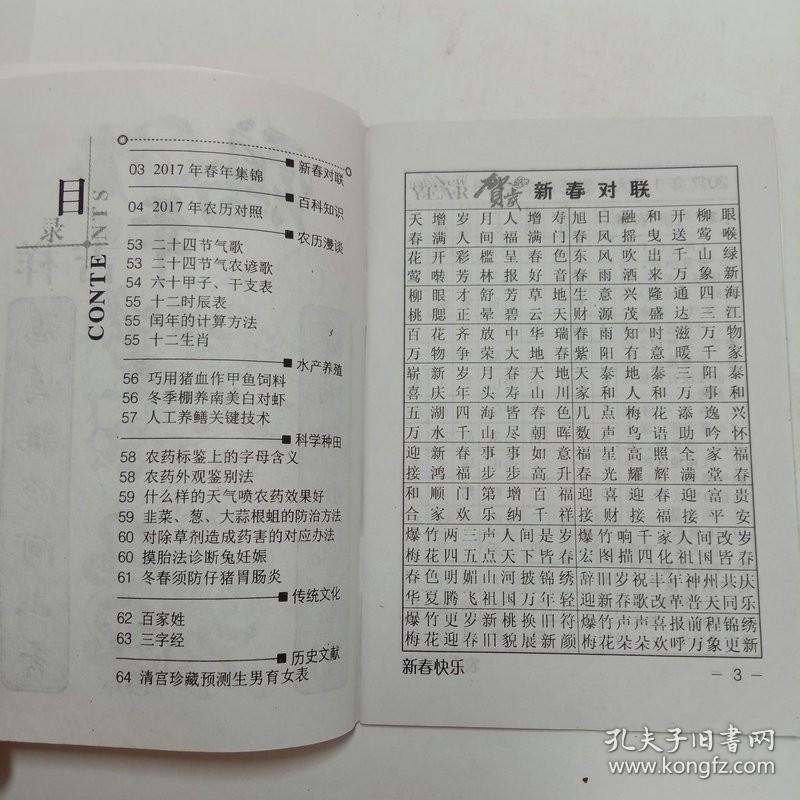 目录
CONTENTS
新春对联
03 2017年春年集锦
百科知识
04 2017年农历对照
农历漫谈
53 二十四节气歌
53 二十四节气农谚歌
54 六十甲子、干支表
55 十二时辰表
55 闰年的计算方法
55 十二生肖
水产养殖
56 巧用猪血作甲鱼饲料
56 冬季棚养南美白对虾
57 人工养鳝关键技术
科学种田
58 农药标鉴上的字母含义
58 农药外观鉴别法
59 什么样的天气喷农药效果好
59 韭菜、葱、大蒜根蛆的防治方法
60 对除草剂造成药害的对应办法
60 摸胎法诊断兔妊娠
61 冬春须防仔猪胃肠炎
传统文化
62 百家姓
63 三字经
历史文献
64 清宫珍藏预测生男育女表
贺岁 新春对联
天增岁月人增寿 旭日融和开柳眼
春满人间福满门 春风摇曳送莺喉
花开彩槛呈春色 东风吹出千山绿
莺啭芳林报好音 春雨洒来万象新
柳眼才舒芳草地 生意兴隆通四海
桃腮正晕碧云天 财源茂盛达三江
百花齐放中华瑞 春雨知时滋万物
万物争荣大地春 紫阳有意暖千家
崭新岁月春天地 天泰地泰三阳泰
喜庆年头寿山川 家和人和万事和
五湖四海皆春色 几点梅花添逸兴
万水千山尽朝晖 数声鸟语助吟怀
迎新春事事如意 福星高照全家福
接鸿福步步高升 春光耀辉满堂春
和顺门第增百福 迎喜迎春迎富贵
合家欢乐纳千祥 接财接福接平安
爆竹两三声人间是岁 爆竹响千家人间改岁
梅花四五点天下皆春 宏图描四化祖国皆春
春色明媚山河披锦绣 辞旧岁祝丰年神州共庆
华夏腾飞祖国万年轻 迎新春歌改革普天同乐
爆竹更岁新桃换旧符 爆竹声声喜报前程锦绣
梅花迎春旧貌展新颜 梅花朵朵欢呼万象更新
新春快乐
- 3 -
孔夫子旧书网
www.kongfz.com